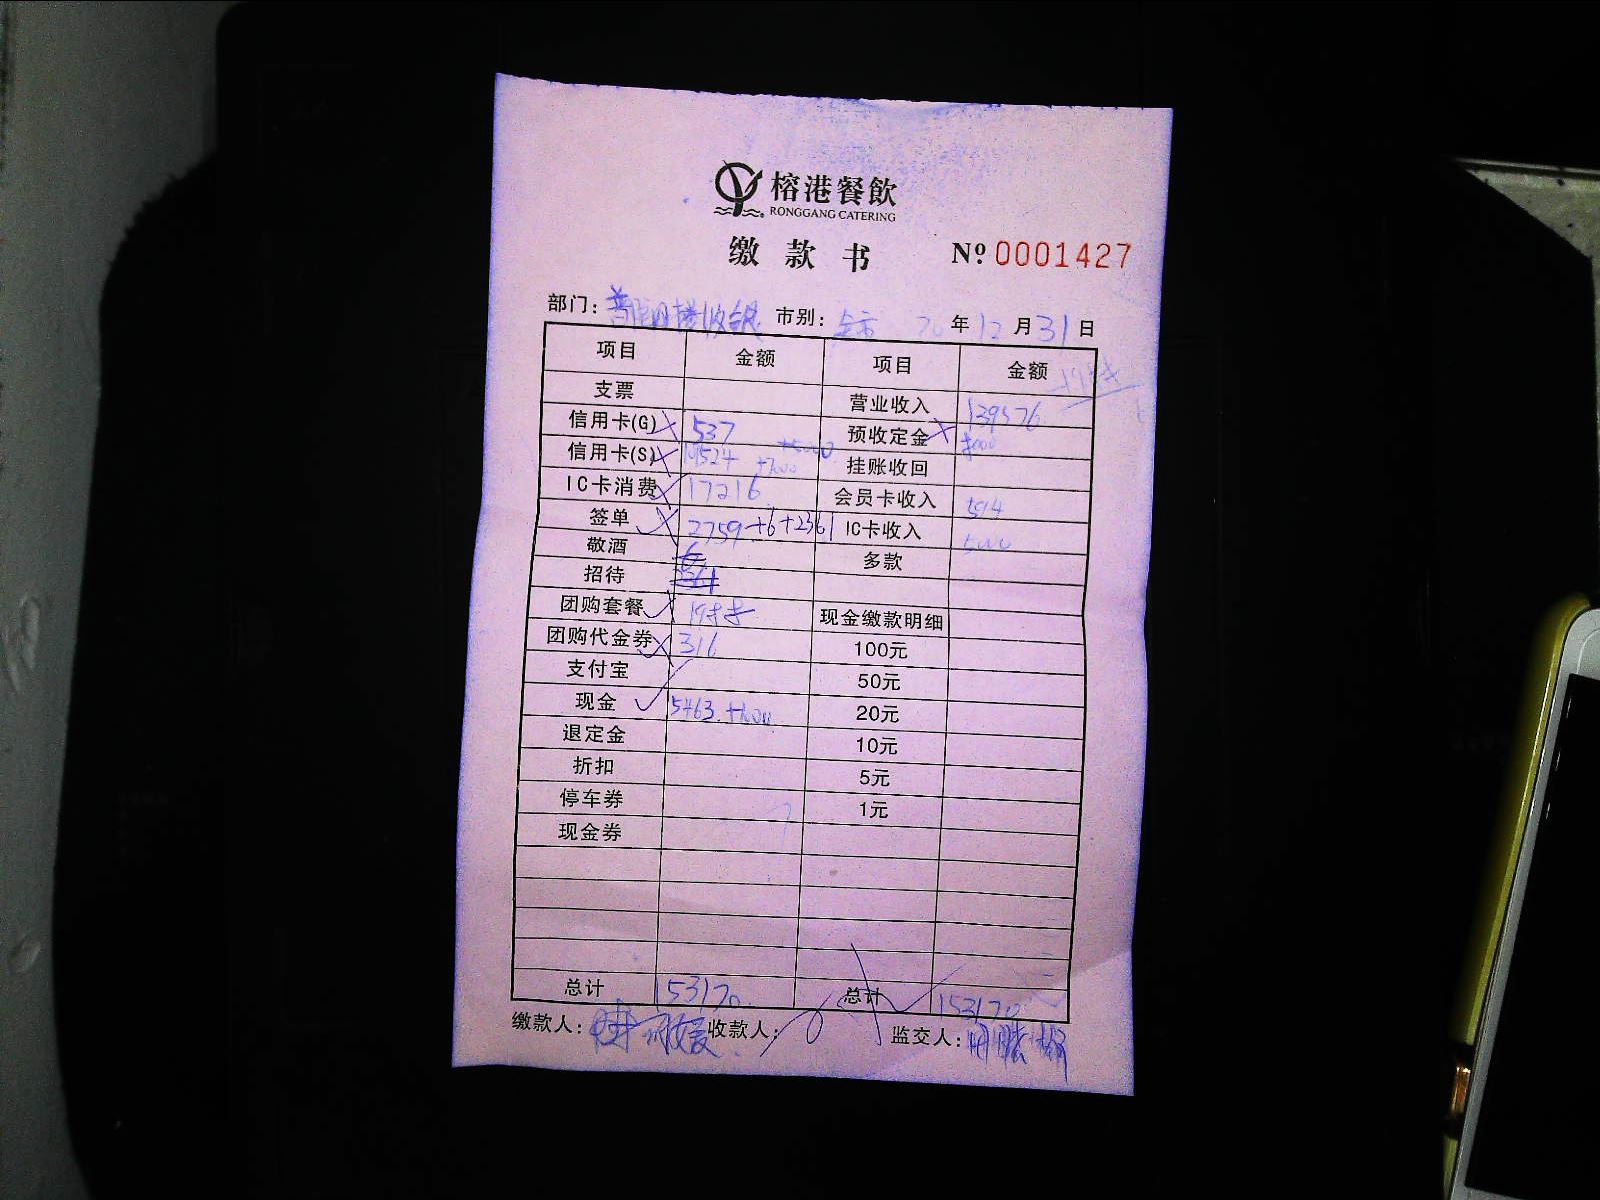 榕港餐飲
RONGGANG CATERING
缴款书 Nº 0001427
部门: 市别: 全市 20年12月31日
项目 金额 项目 金额
支票 营业收入 139576
信用卡(G) 537 预收定金
信用卡(S) +5000 +7000 挂账收回
IC卡消费 17216 会员卡收入 594
签单 2759+6+2361 IC卡收入 5000
敬酒 多款
招待
团购套餐 现金缴款明细
团购代金券 316 100元
支付宝 50元
现金 5463 20元
退定金 10元
折扣 5元
停车券 1元
现金券
总计 153170 总计 153170
缴款人: 收款人: 监交人: